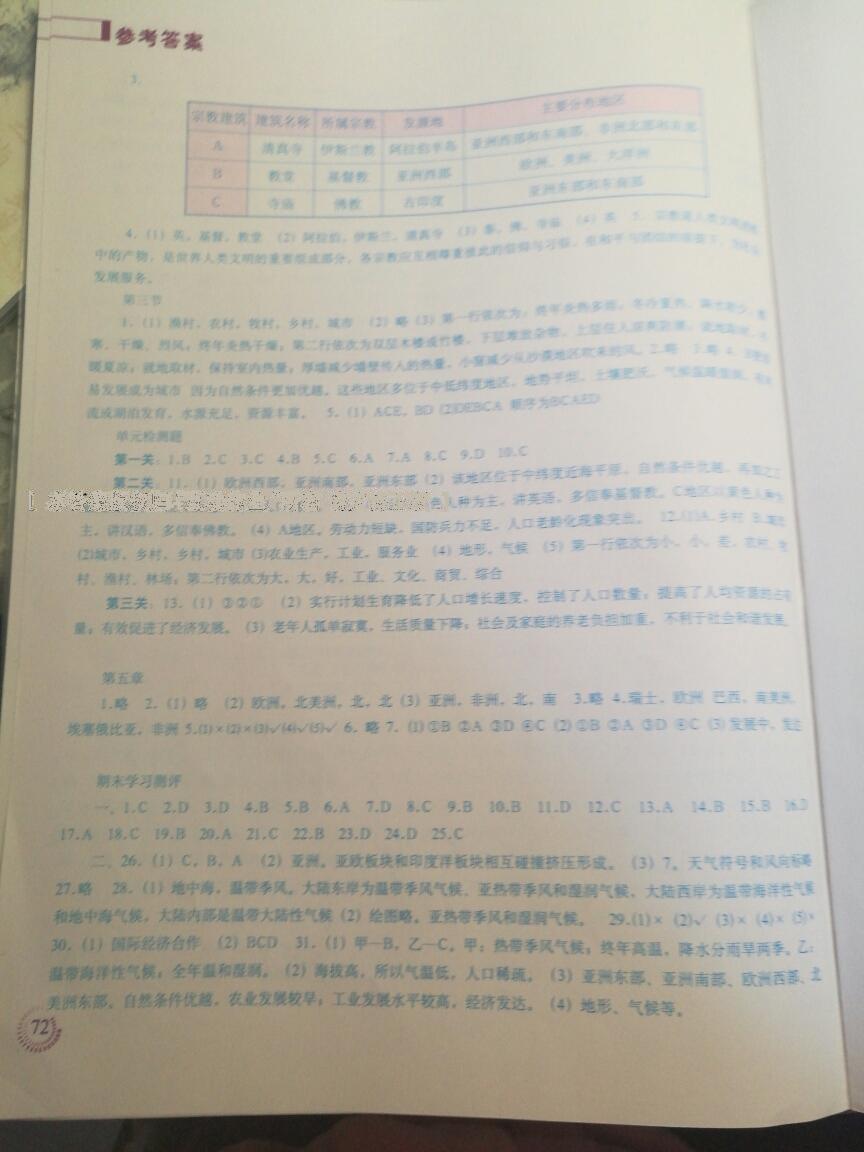 参考答案
3.
宗教建筑 建筑名称 所属宗教 发源地 主要分布地区
A 清真寺 伊斯兰教 阿拉伯半岛 亚洲西部和东南部、非洲北部和东部
B 教堂 基督教 亚洲西部 欧洲、美洲、大洋洲
C 寺庙 佛教 古印度 亚洲东部和东南部
4.(1)英,基督,教堂 (2)阿拉伯,伊斯兰,清真寺 (3)泰,佛,寺庙 (4)英 5.宗教是人类文明
中的产物,是世界人类文明的重要组成部分,各宗教应互相尊重彼此的信仰与习俗,在和平与团结的
发展服务。
第三节
1.(1)渔村,农村,牧村,乡村,城市 (2)略(3)第一行依次为:终年炎热多雨;冬冷夏热,降水
寒、干燥、烈风;终年炎热干燥;第二行依次为双层木楼或竹楼,下层堆放杂物,上层住人
暖夏凉;就地取材,保持室内热量;厚墙减少墙壁传入的热量,小窗减少从沙漠地区吹来的风。2.略 3.略 4.
易发展成为城市 因为自然条件更加优越,这些地区多位于中低纬度地区,地势平坦,土壤肥沃,气候温暖湿润,
流或湖泊发育,水源充足,资源丰富。 5.(1)ACE,BD (2)DEBCA 顺序为BCAED
单元检测题
第一关:1.B 2.C 3.C 4.B 5.C 6.A 7.A 8.C 9.D 10.C
第二关:11.(1)欧洲西部,亚洲南部,亚洲东部(2)该地区位于中纬度近海平原,自然条件优越,
色人种为主,讲英语,多信奉基督教。C地区以黄色人种为
主,讲汉语,多信奉佛教。 (4)A地区。劳动力短缺,国防兵力不足,人口老龄化现象突出。 12.(1)A.乡村 B.城市
(2)城市,乡村,乡村,城市 (3)农业生产,工业,服务业 (4)地形,气候 (5)第一行依次为小,小,差,农村、牧
村、渔村、林场;第二行依次为大,大,好,工业、文化、商贸、综合
第三关:13.(1)③②① (2)实行计划生育降低了人口增长速度,控制了人口数量;提高了人均资源的占有
量;有效促进了经济发展。(3)老年人孤单寂寞,生活质量下降;社会及家庭的养老负担加重,不利于社会和谐发展。
第五章
1.略 2.(1)略 (2)欧洲,北美洲,北,北(3)亚洲,非洲,北,南 3.略 4.瑞士,欧洲 巴西,南美洲,
埃塞俄比亚,非洲 5.(1)×(2)×(3)√(4)√(5)√ 6.略 7.(1)①B ②A ③D ④C (2)①B ②A ③D ④C (3)发展中,发达
期末学习测评
一、1.C 2.D 3.D 4.B 5.B 6.A 7.D 8.C 9.B 10.B 11.D 12.C 13.A 14.B 15.B 16.D
17.A 18.C 19.B 20.A 21.C 22.B 23.D 24.D 25.C
二、26.(1)C,B,A (2)亚洲。亚欧板块和印度洋板块相互碰撞挤压形成。(3)7。天气符号和风向标略
27.略 28.(1)地中海,温带季风。大陆东岸为温带季风气候、亚热带季风和湿润气候,大陆西岸为温带海洋性气候
和地中海气候,大陆内部是温带大陆性气候(2)绘图略。亚热带季风和湿润气候。 29.(1)× (2)√ (3)× (4)× (5)×
30.(1)国际经济合作 (2)BCD 31.(1)甲—B,乙—C。甲:热带季风气候;终年高温,降水分雨旱两季。乙:
温带海洋性气候;全年温和湿润。(2)海拔高,所以气温低,人口稀疏。(3)亚洲东部、亚洲南部、欧洲西部、北
美洲东部。自然条件优越,农业发展较早;工业发展水平较高,经济发达。(4)地形、气候等。
72